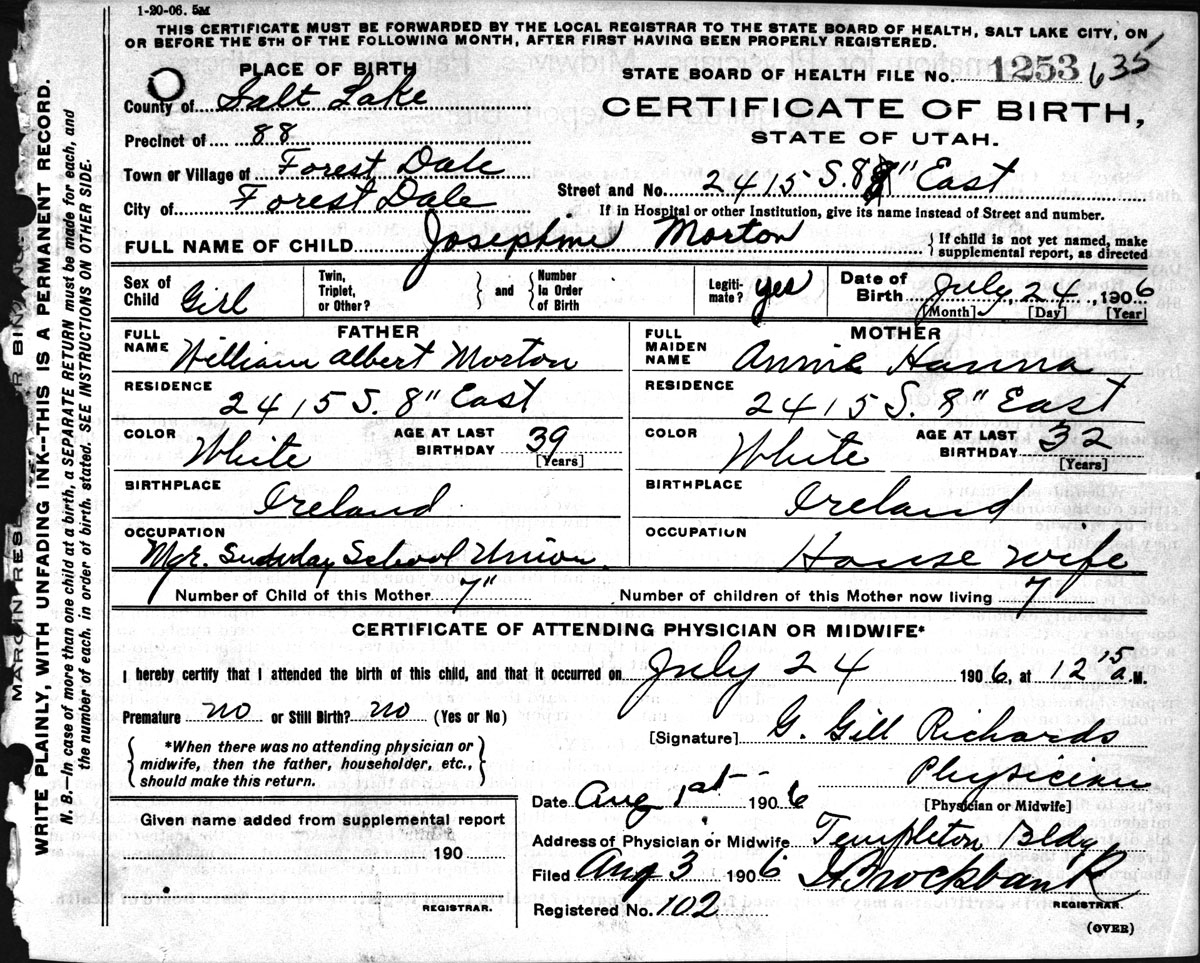 1-20-06. 5M
THIS CERTIFICATE MUST BE FORWARDED BY THE LOCAL REGISTRAR TO THE STATE BOARD OF HEALTH, SALT LAKE CITY, ON
OR BEFORE THE 5TH OF THE FOLLOWING MONTH, AFTER FIRST HAVING BEEN PROPERLY REGISTERED.
PLACE OF BIRTH
STATE BOARD OF HEALTH FILE No. 1253 635
County of Salt Lake
CERTIFICATE OF BIRTH,
Precinct of 88
STATE OF UTAH.
Town or Village of Forest Dale
Street and No. 2415 S. 8" East
City of Forest Dale
If in Hospital or other Institution, give its name instead of Street and number.
FULL NAME OF CHILD Josephine Morton
If child is not yet named, make
supplemental report, as directed
Sex of Child Girl
Twin, Triplet, or Other?
and
Number In Order of Birth
Legiti-mate? yes
Date of Birth July 24, 1906
[Month] [Day] [Year]
FATHER
FULL NAME William Albert Morton
RESIDENCE
2415 S. 8" East
COLOR White AGE AT LAST BIRTHDAY 39
[Years]
BIRTHPLACE
Ireland
OCCUPATION
Mgr. Sunday School Union.
MOTHER
FULL MAIDEN NAME Annie Hanna
RESIDENCE
2415 S. 8" East
COLOR White AGE AT LAST BIRTHDAY 32
[Years]
BIRTHPLACE
Ireland
OCCUPATION
House wife
Number of Child of this Mother 7"
Number of children of this Mother now living 7
CERTIFICATE OF ATTENDING PHYSICIAN OR MIDWIFE*
I hereby certify that I attended the birth of this child, and that it occurred on July 24 1906, at 12 15 a.M.
Premature no or Still Birth? no (Yes or No)
*When there was no attending physician or
midwife, then the father, householder, etc.,
should make this return.
[Signature] G. Gill Richards
Physician
Date Aug 1st 1906
[Physician or Midwife]
Given name added from supplemental report
190
REGISTRAR.
Address of Physician or Midwife Templeton Bldg
Filed Aug 3 1906 Brockbank
REGISTRAR.
Registered No. 102
(OVER)
MARGIN RES R BINDING
WRITE PLAINLY, WITH UNFADING INK--THIS IS A PERMANENT RECORD.
N. B.—In case of more than one child at a birth, a SEPARATE RETURN must be made for each, and
the number of each, in order of birth, stated. SEE INSTRUCTIONS ON OTHER SIDE.